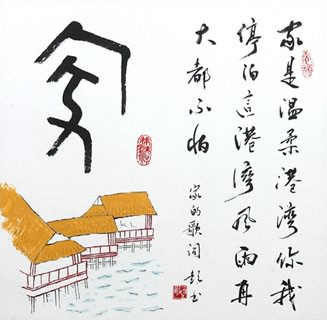 家
家是温柔港湾你我
停泊這港灣風雨再
大都不怕
家的歌词 书